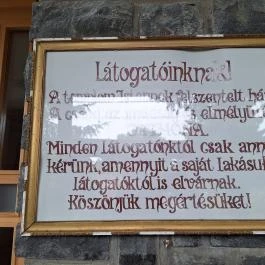 Látogatóinknak!
A templom Istennek felszentelt há
A csend, az ima és az elmélyü
Minden látogatónktól csak ann
kérünk, amennyit a saját lakásuk
látogatóktól is elvárnak.
Köszönjük megértésüket!